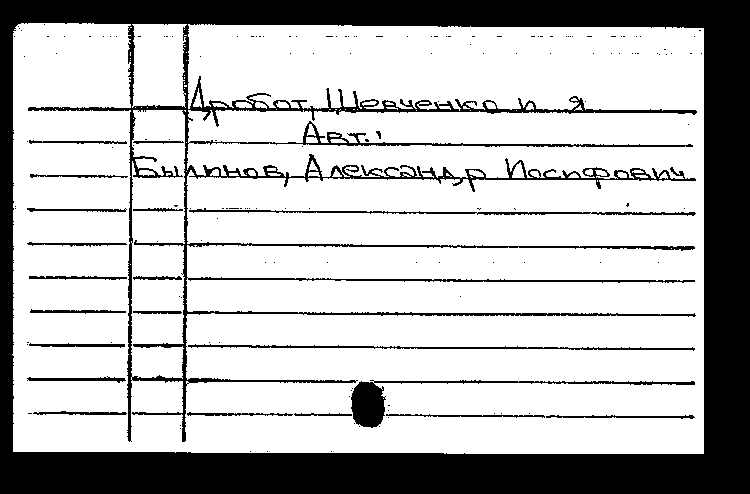 Дробот, Шевченко и я
Авт.:
Былинов, Александр Иосифович